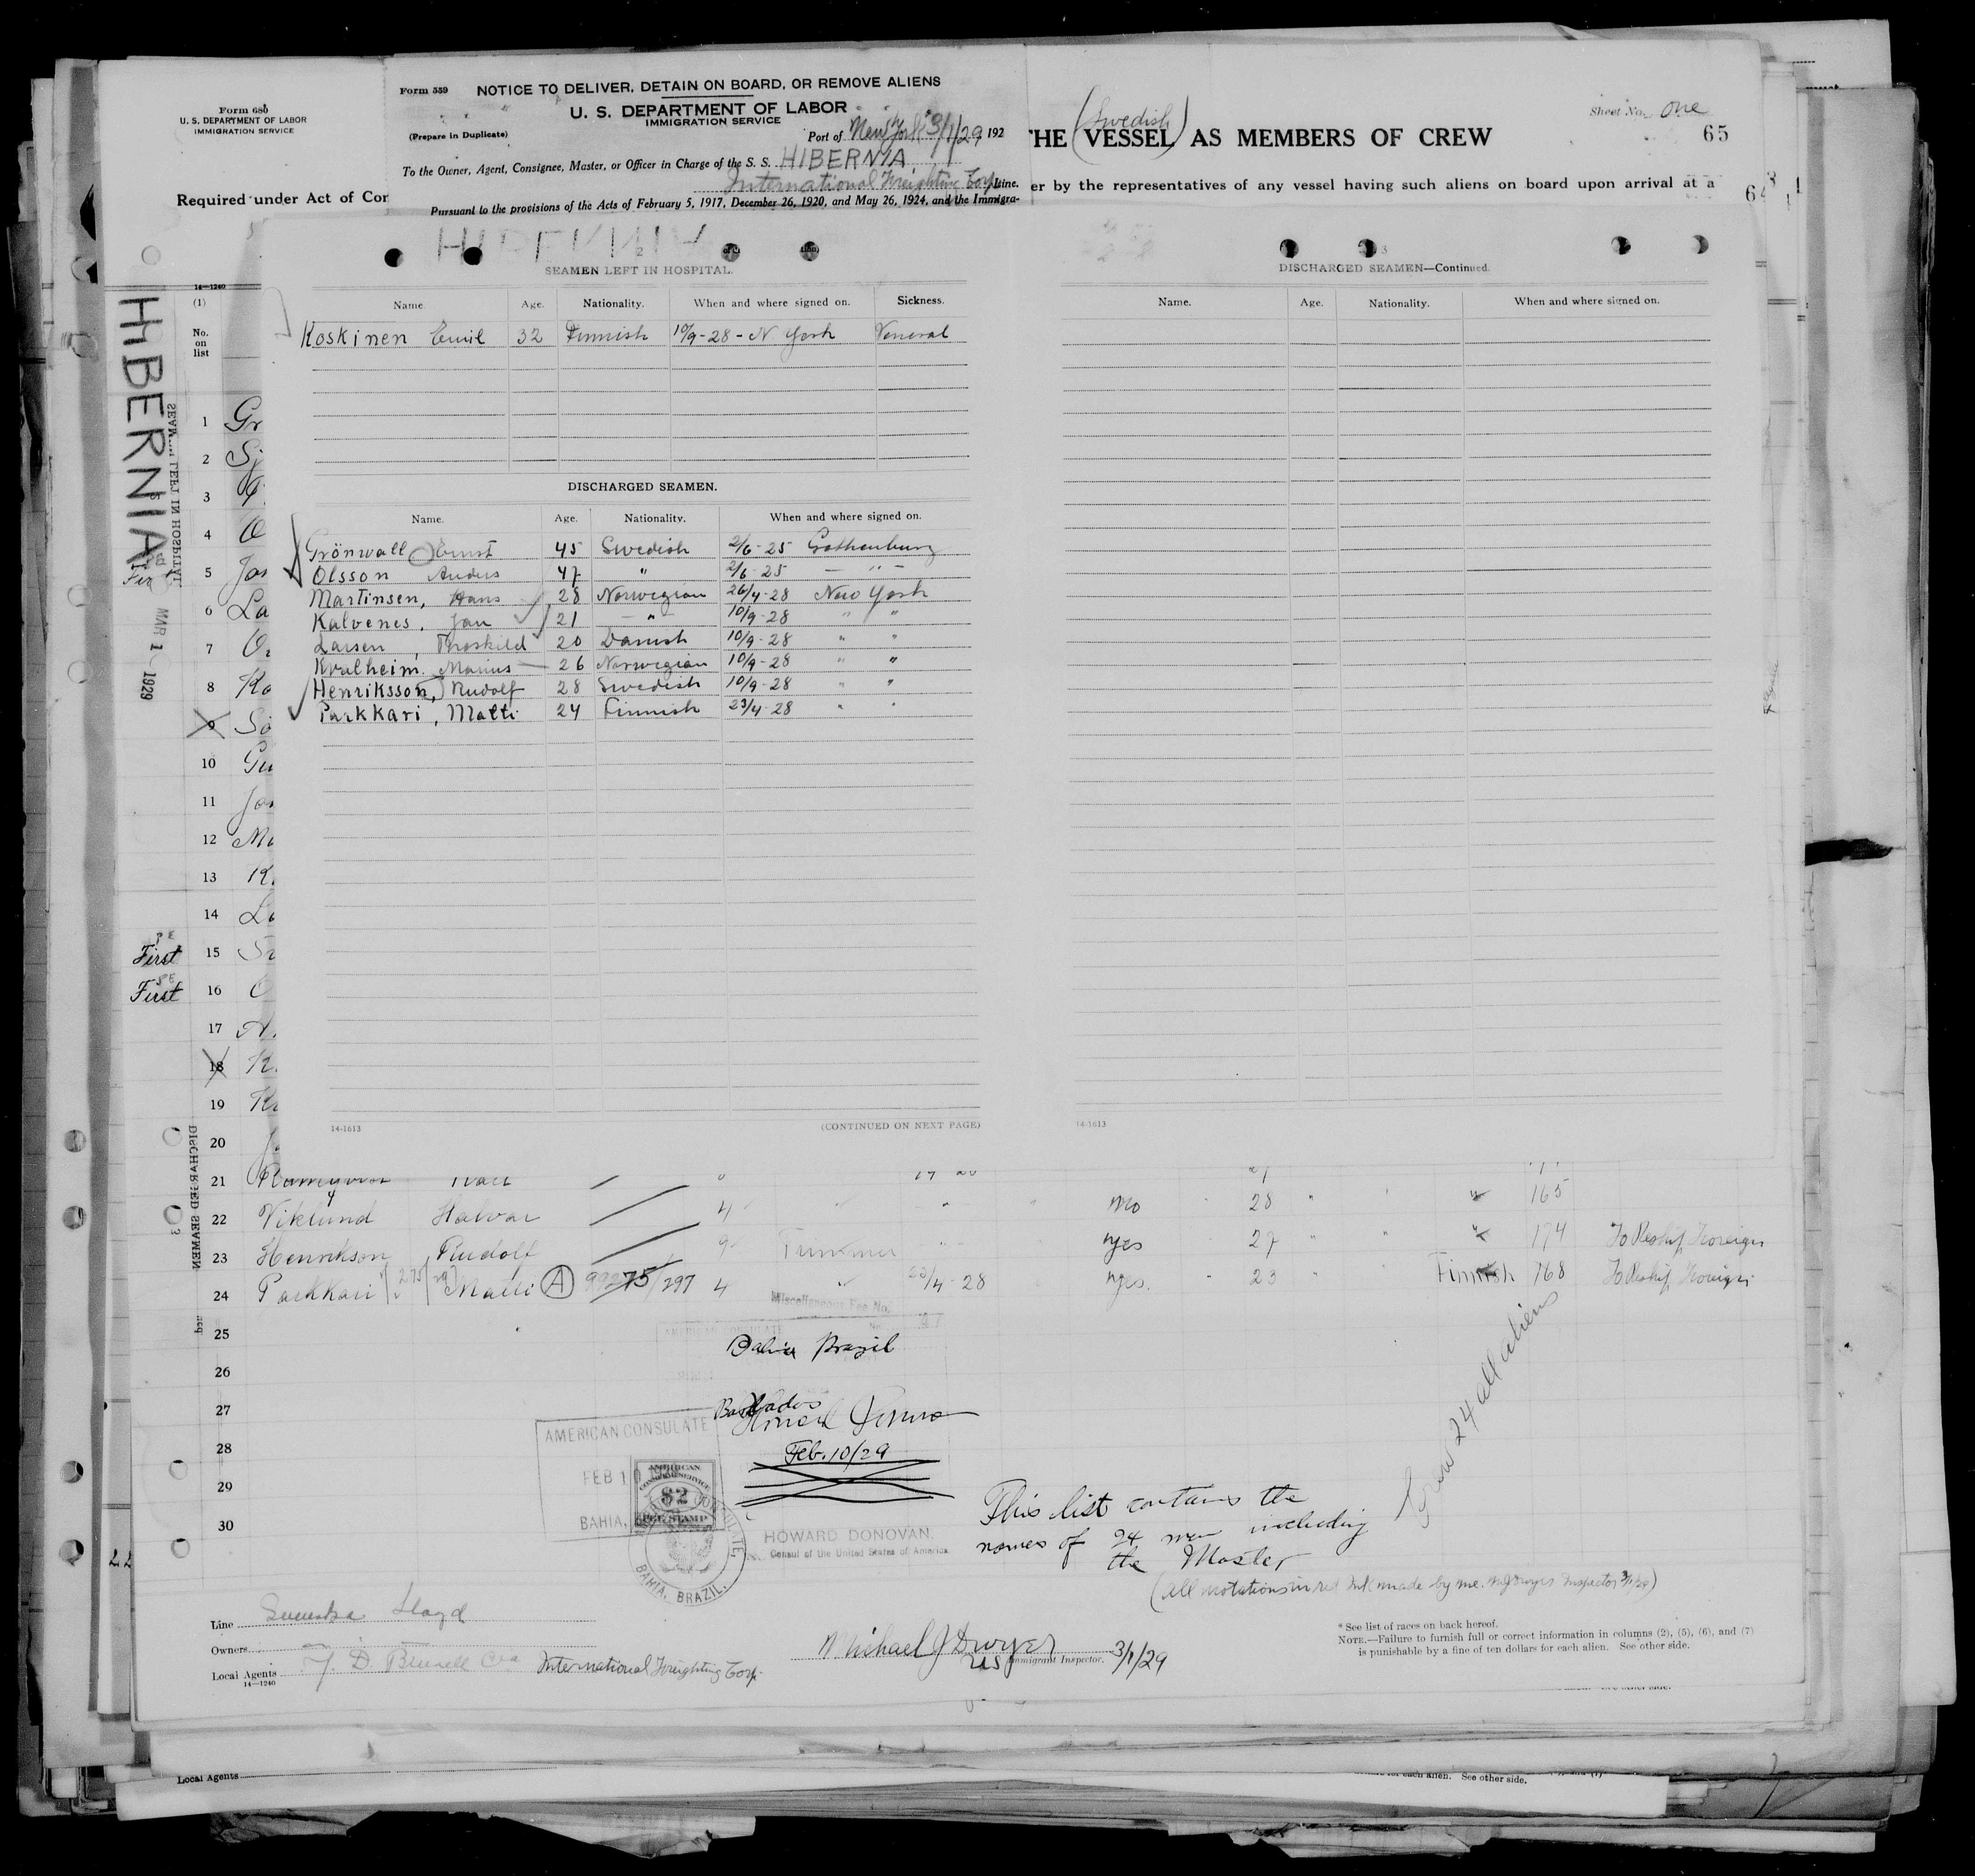 Form 689
U. S. DEPARTMENT OF LABOR
IMMIGRATION SERVICE
Required under Act of Con
Form 559 NOTICE TO DELIVER, DETAIN ON BOARD, OR REMOVE ALIENS
U. S. DEPARTMENT OF LABOR
IMMIGRATION SERVICE
(Prepare in Duplicate)
Port of New York 3/1/29, 192
To the Owner, Agent, Consignee, Master, or Officer in Charge of the S. S. HIBERNIA
International Freighting Corp Line.
Pursuant to the provisions of the Acts of February 5, 1917, December 26, 1920, and May 26, 1924, and the Immigra-
Sheet No. One
65
(Swedish)
THE VESSEL AS MEMBERS OF CREW
er by the representatives of any vessel having such aliens on board upon arrival at a
HIBERNIA
2
SEAMEN LEFT IN HOSPITAL.
Name. Age. Nationality. When and where signed on. Sickness.
Koskinen Emil 32 Finnish 10/9-28 - N York Veneral
DISCHARGED SEAMEN.
Name. Age. Nationality. When and where signed on.
Grönwall Ernst 45 Swedish 2/6-25 Gothenburg
Olsson Anders 47 " 2/6-25 - " -
Martinsen, Hans 28 Norwegian 26/4-28 New York
Kalvenes, Jan 21 - " 10/9-28 " "
Larsen, Thorkild 20 Danish 10/9-28 " "
Kvalheim Marius 26 Norwegian 10/9-28 " "
Henriksson, Rudolf 28 Swedish 10/9-28 " "
Parkkari, Matti 24 Finnish 23/4-28 " "
14-1613
(CONTINUED ON NEXT PAGE)
3
DISCHARGED SEAMEN—Continued.
Name. Age. Nationality. When and where signed on.
14-1613
HIBERNIA
SEAMEN LEFT IN HOSPITAL
MAR 1 1929
DISCHARGED SEAMEN
14-1240
(1)
No. on list
1 Gr
2 Sj
3
4 O
5 Jo
6 La
7
8 Ko
9 So
10 Gu
11 Jo
12 Ma
13 K
14 La
First 15
First 16
17 A
18 K
19 K
20
21
22 Viklund Halvar 4 " " no 28 " " 165
23 Henrikson Rudolf 9 Trimmer " yes 27 " " 174 To Reship Foreign
24 Parkkari Matti (A) 99275/297 4 " 23/4-28 yes. 23 Finnish 168 To Reship Foreign
25
26
27
28
29
30
Miscellaneous Fee No.
Bahia Brazil
Barbados
Feb. 10/29
AMERICAN CONSULATE
FEB 1
BAHIA,
AMERICAN
CONSULAR SERVICE
$2
FEE STAMP
BAHIA, BRAZIL.
HOWARD DONOVAN.
Consul of the United States of America
This list contains the
names of 24 men including
the Master
Crew 24 all aliens
(All notations in red ink made by me. MJ Dwyer Inspector 3/1/29)
Line Svenska Lloyd
Owners
Local Agents International Freighting Corp.
14-1240
Michael J Dwyer
US Immigrant Inspector. 3/1/29
* See list of races on back hereof.
NOTE.—Failure to furnish full or correct information in columns (2), (5), (6), and (7)
is punishable by a fine of ten dollars for each alien. See other side.
Local Agents
for each alien. See other side.